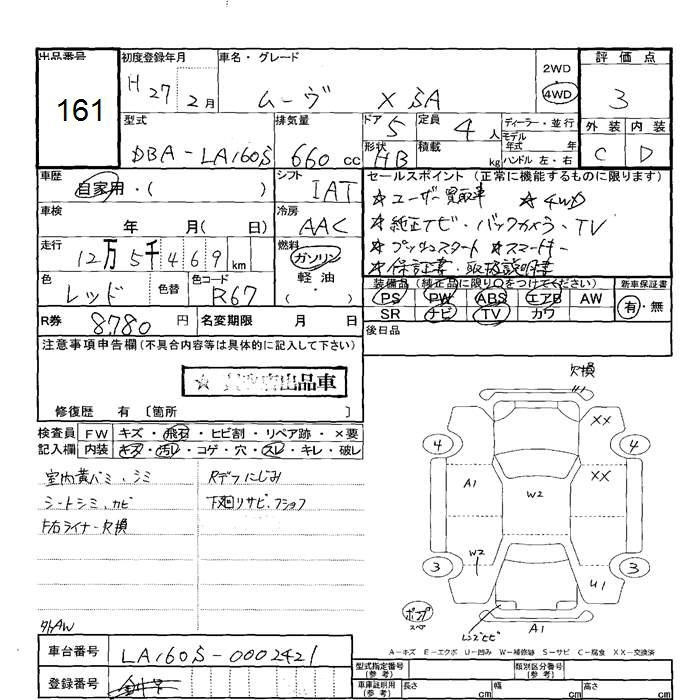 出品番号 初度登録年月 車名・グレード 2WD 評価点
161 H 27 2月 ムーヴ X SA 4WD 3
型式 排気量 ドア 5 定員 4人 ディーラー・並行 外装 内装
モデル 年式 年
DBA-LA160S 660cc 形状 HB 積載 kg ハンドル 左・右 C D
車歴 シフト セールスポイント(正常に機能するものに限ります)
自家用・( ) IAT ☆ユーザー買取車 ☆4WD
車検 冷房 ☆純正ナビ・バックカメラ・TV
年 月( 日) AAC ☆プッシュスタート ☆スマートキー
走行 燃料 ☆保証書・取扱説明書
12万5千469km ガソリン・軽油
装備品(純正品に限り○をつけてください) 新車保証書
色 色替 色コード PS PW ABS エアB AW 有・無
レッド R67 SR ナビ TV カワ
R券 8780円 名変期限 月 日 後日品
注意事項申告欄(不具合内容等は具体的に記入して下さい)
☆ 出品車
修復歴 有 〔箇所 〕
欠損
検査員 FW キズ・飛石・ヒビ割・リペア跡・×要
記入欄 内装 キズ・汚レ・コゲ・穴・スレ・キレ・破レ
室内黄バミ、シミ Rデフにじみ
シートシミ、カビ 下廻リサビ・フショク
F右ライナー欠損
XX
4 4
A1 XX
W2
W2
3 3
U1
ポンプ スペア
レンズヒビ A1
外AW
A-キズ E-エクボ U-凹み W-補修跡 S-サビ C-腐食 XX-交換済
車台番号 LA160S-0002421
型式指定番号(参考) 類別区分番号(参考)
登録番号
車庫証明用(参考) 長さ cm 幅 cm 高さ cm